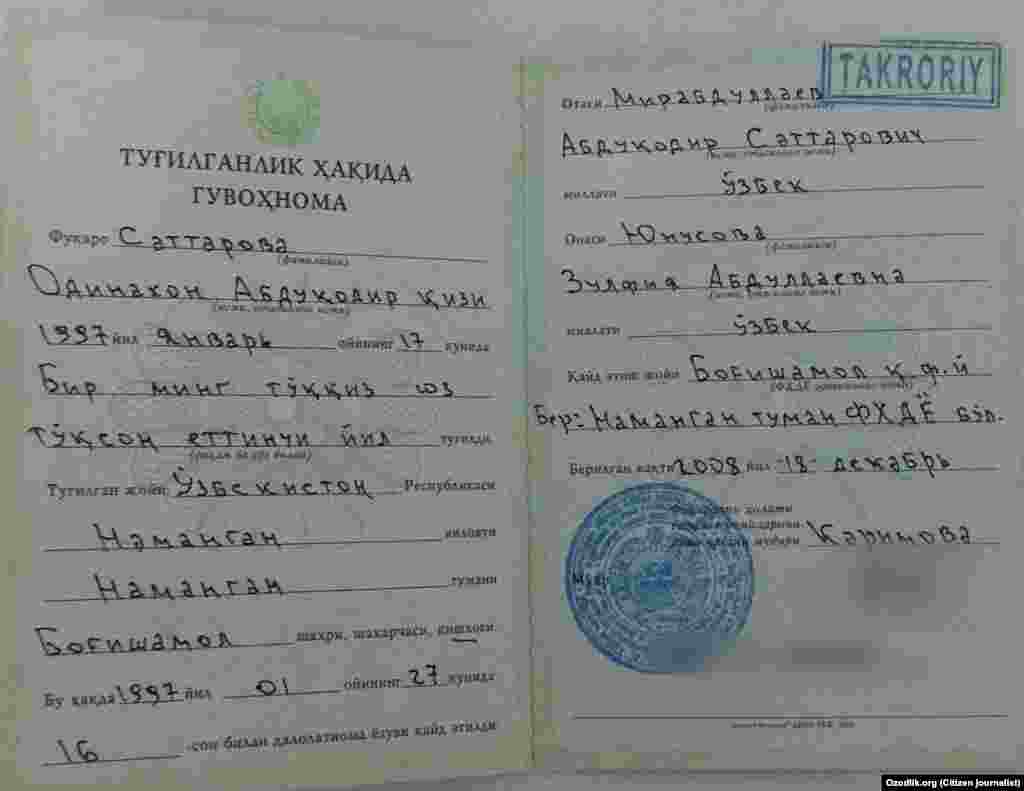 ТУҒИЛГАНЛИК ҲАҚИДА
ГУВОҲНОМА
Фуқаро Саттарова
(фамилияси)
Одинахон Абдуқодир қизи
(исми, отасининг исми)
1997 йил январь ойининг 17 кунида
Бир минг тўққиз юз
тўқсон еттинчи йил туғилди.
Туғилган жойи: Ўзбекистон Республикаси
Наманган вилояти
Наманган тумани
Боғишамол шаҳри, шаҳарчаси, қишлоғи.
Бу ҳақда 1997 йил 01 ойининг 27 кунида
16 -сон билан далолатнома ёзуви қайд этилди
TAKRORIY
Отаси Мирабдуллаев
(фамилияси)
Абдуқодир Саттарович
(исми, отасининг исми)
миллати ўзбек
Онаси Юнусова
(фамилияси)
Зулфия Абдуллаевна
(исми, отасининг исми)
миллати ўзбек
Қайд этиш жойи Боғишамол қ.ф.й
Бер: Наманган туман ФХДЁ бўл.
Берилган вақти 2008 йил -18- декабрь
Каримова
Ozodlik.org (Citizen journalist)